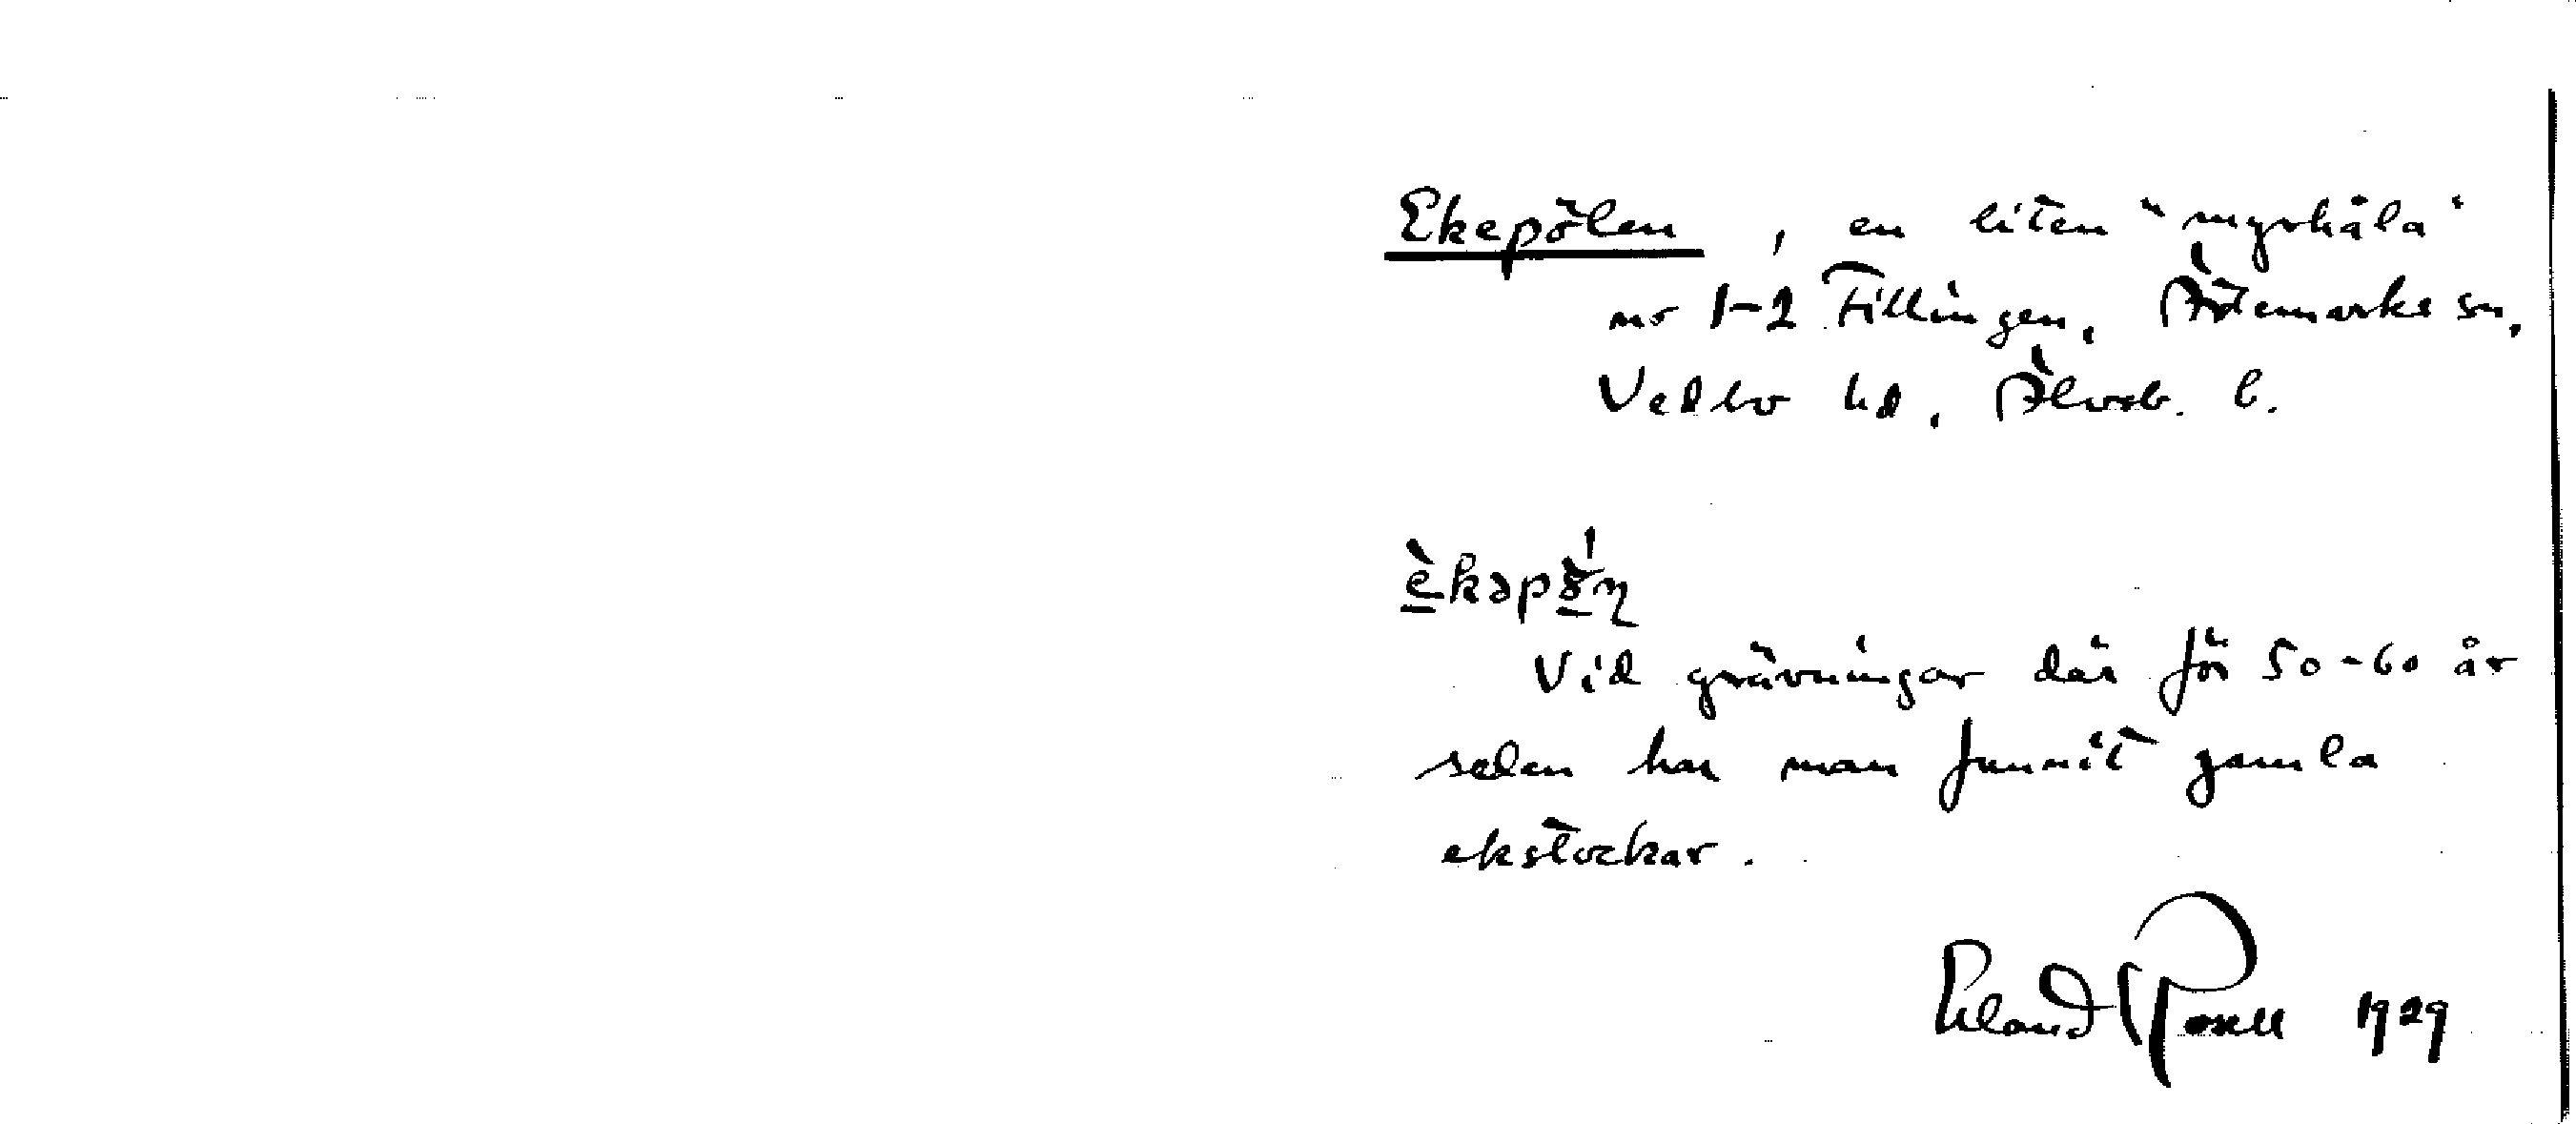 Ekepölen, en liten "myrhåla"
nr 1-2 Tillingen, Ärtemarks sn,
Vedbo hd, Älvsb. l.
èkəpö̀'n̥
Vid grävningar där för 50-60 år
sedan har man funnit gamla
ekstockar.
Erland Rosell 1929